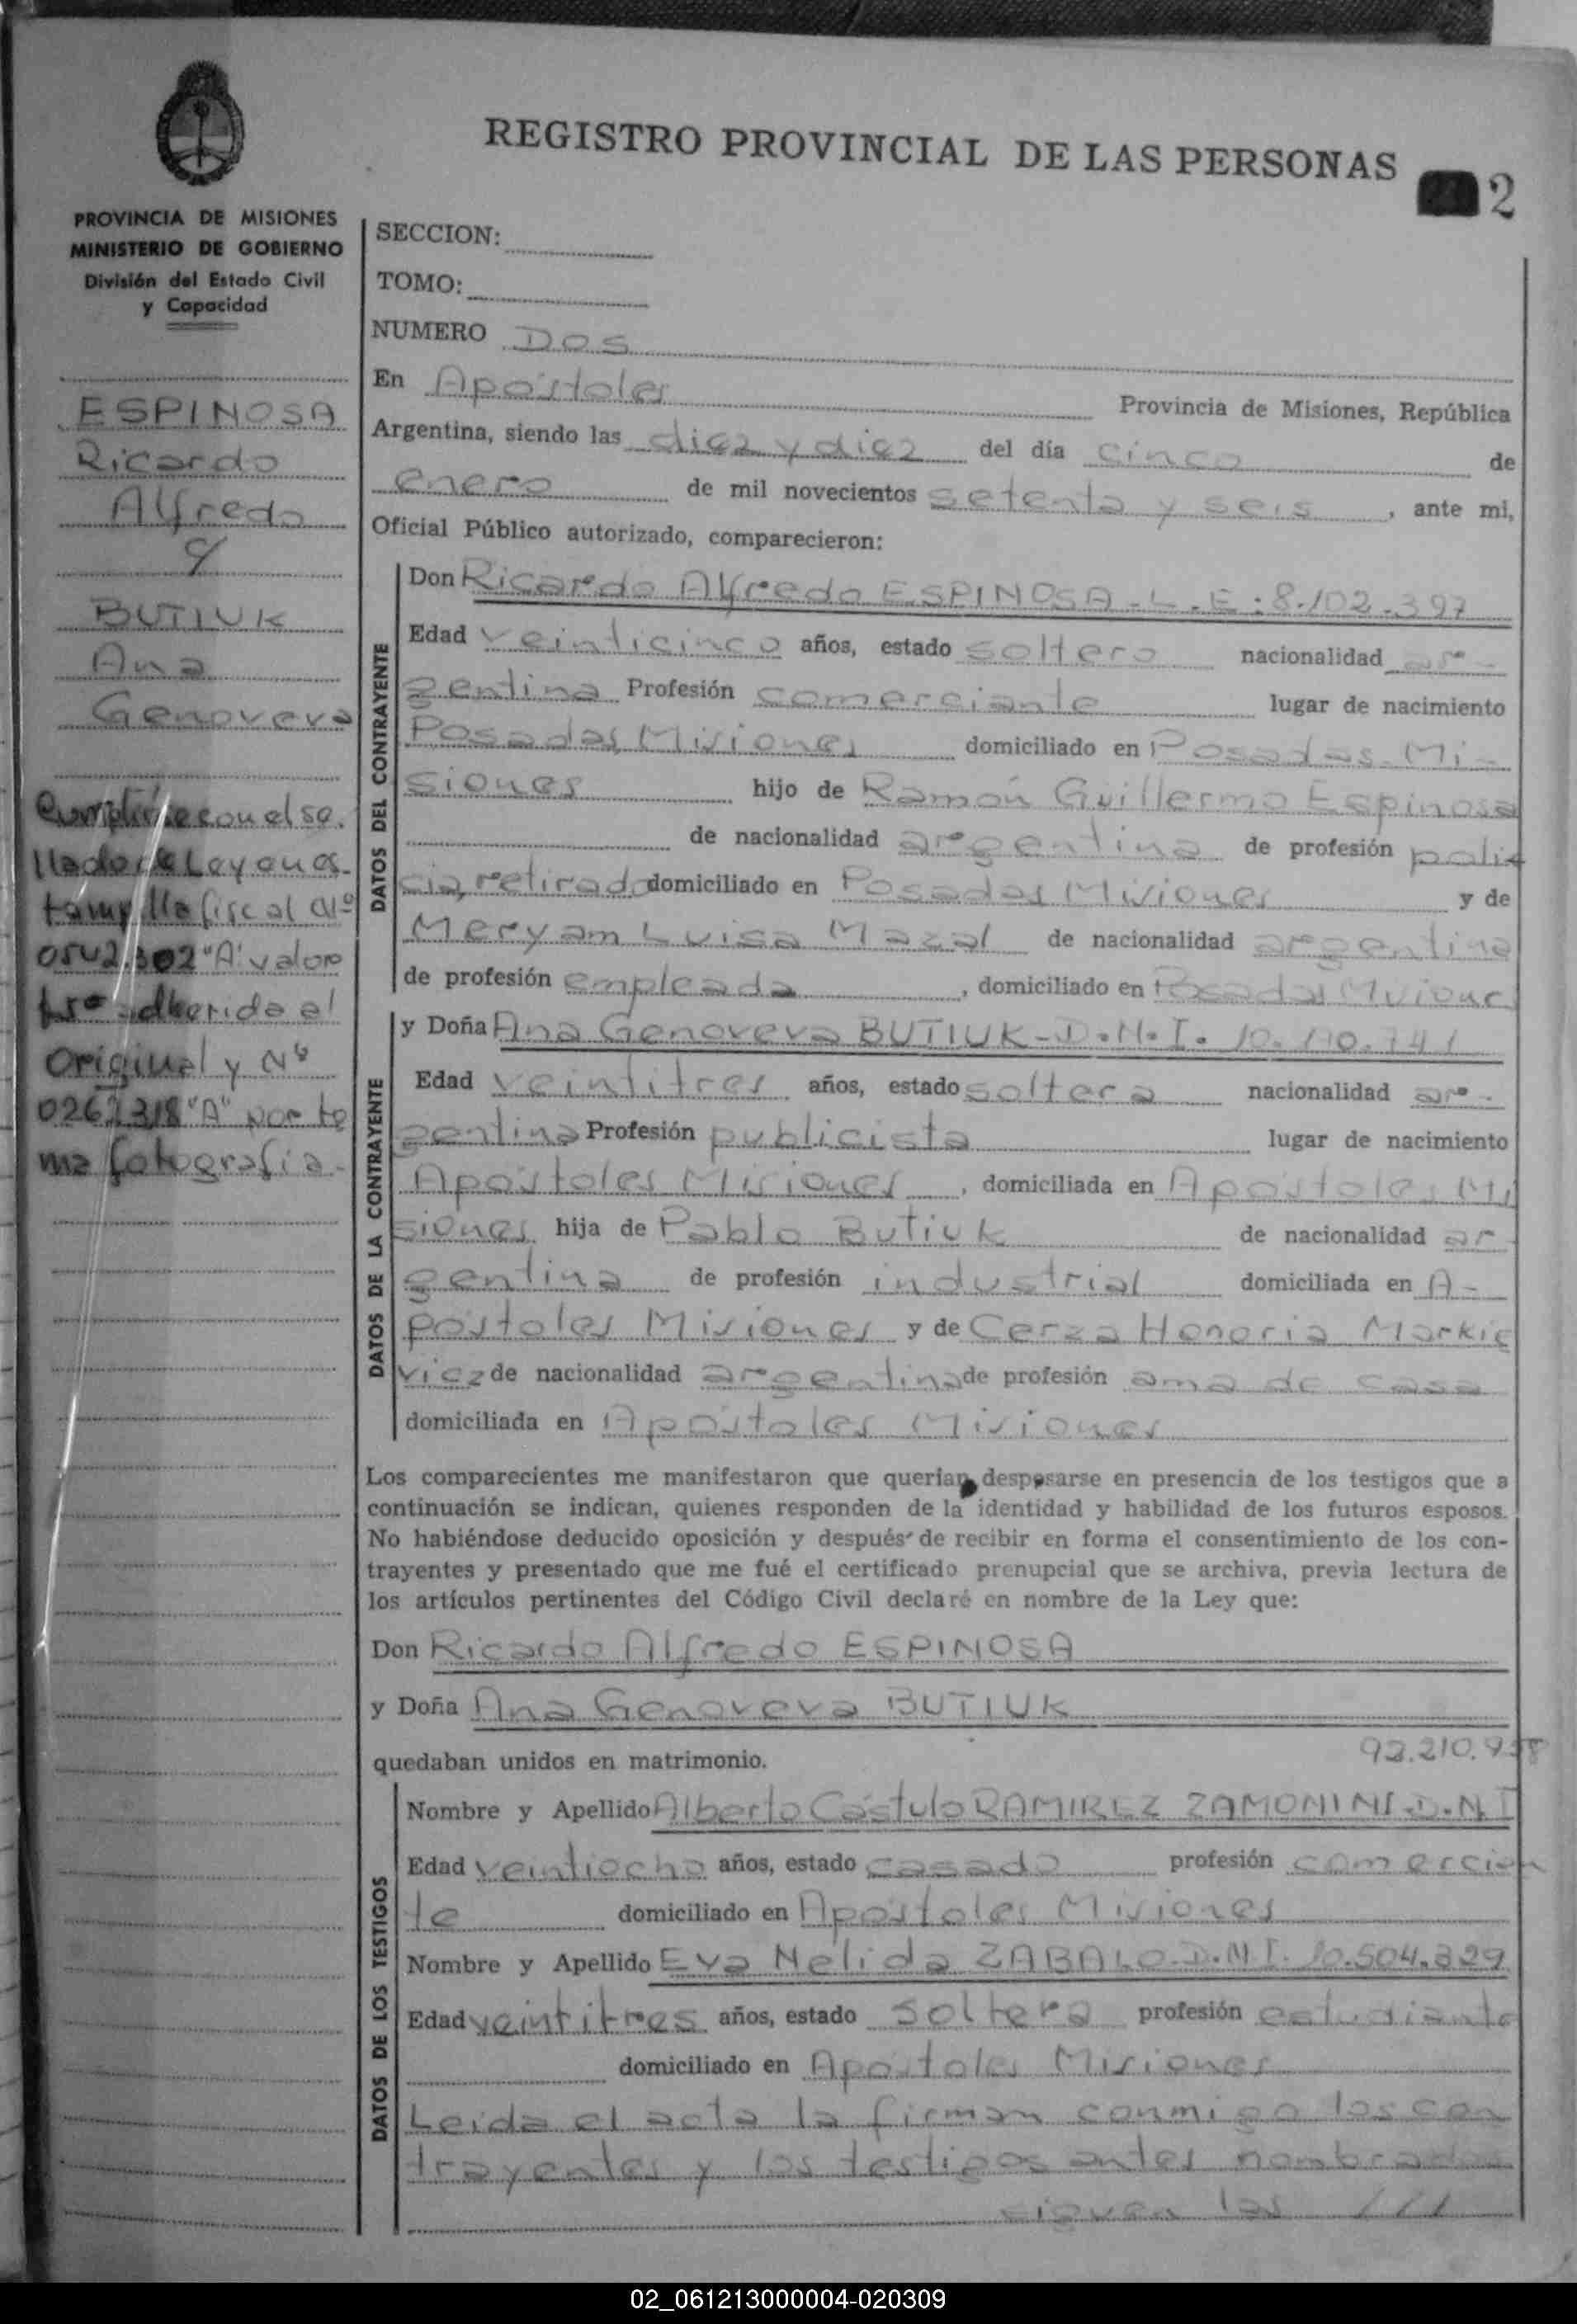 REGISTRO PROVINCIAL DE LAS PERSONAS
2
PROVINCIA DE MISIONES
MINISTERIO DE GOBIERNO
División del Estado Civil
y Capacidad
ESPINOSA
Ricardo
Alfredo
y
BUTIUK
Ana
Genoveva
Cumplese con el se.
llado de Ley en es.
tampilla fiscal Nº
0542.302 "A" valor
adherida al
Original y Nº
0262318 "A" por to
ma fotografia.
SECCION:
TOMO:
NUMERO Dos
En Apóstoles Provincia de Misiones, República
Argentina, siendo las diez y diez del día cinco de
enero de mil novecientos setenta y seis, ante mi,
Oficial Público autorizado, comparecieron:
DATOS DEL CONTRAYENTE
Don Ricardo Alfredo ESPINOSA-L.E:8.102.397
Edad veinticinco años, estado soltero nacionalidad ar-
gentina Profesión comerciante lugar de nacimiento
Posadas Misiones domiciliado en Posadas-Mi-
siones hijo de Ramón Guillermo Espinosa
de nacionalidad argentina de profesión poli
cia, retirado domiciliado en Posadas Misiones y de
Meryam Luisa Mazal de nacionalidad argentina
de profesión empleada, domiciliado en Posadas Misiones
DATOS DE LA CONTRAYENTE
y Doña Ana Genoveva BUTIUK-D.N.I. 10.110.741
Edad veintitres años, estado soltera nacionalidad ar-
gentina Profesión publicista lugar de nacimiento
Apóstoles Misiones, domiciliada en Apóstoles Mi
siones hija de Pablo Butiuk de nacionalidad ar-
gentina de profesión industrial domiciliada en A-
póstoles Misiones y de Cerza Honoria Markie
viez de nacionalidad argentina de profesión ama de casa
domiciliada en Apóstoles Misiones
Los comparecientes me manifestaron que querían desposarse en presencia de los testigos que a
continuación se indican, quienes responden de la identidad y habilidad de los futuros esposos.
No habiéndose deducido oposición y después de recibir en forma el consentimiento de los con-
trayentes y presentado que me fué el certificado prenupcial que se archiva, previa lectura de
los artículos pertinentes del Código Civil declaré en nombre de la Ley que:
Don Ricardo Alfredo ESPINOSA
y Doña Ana Genoveva BUTIUK
quedaban unidos en matrimonio.
92.210.958
DATOS DE LOS TESTIGOS
Nombre y Apellido Alberto Cástulo RAMIREZ ZAMONINI-D.N.I
Edad veintiocho años, estado casado profesión comercian
te domiciliado en Apóstoles Misiones
Nombre y Apellido Eva Nelida ZABALO-D.N.I. 10.504.329
Edad veintitres años, estado soltera profesión estudiante
domiciliado en Apóstoles Misiones
Leida el acta la firman conmigo los con
trayentes y los testigos antes nombrados
siguen las ///
02_061213000004-020309